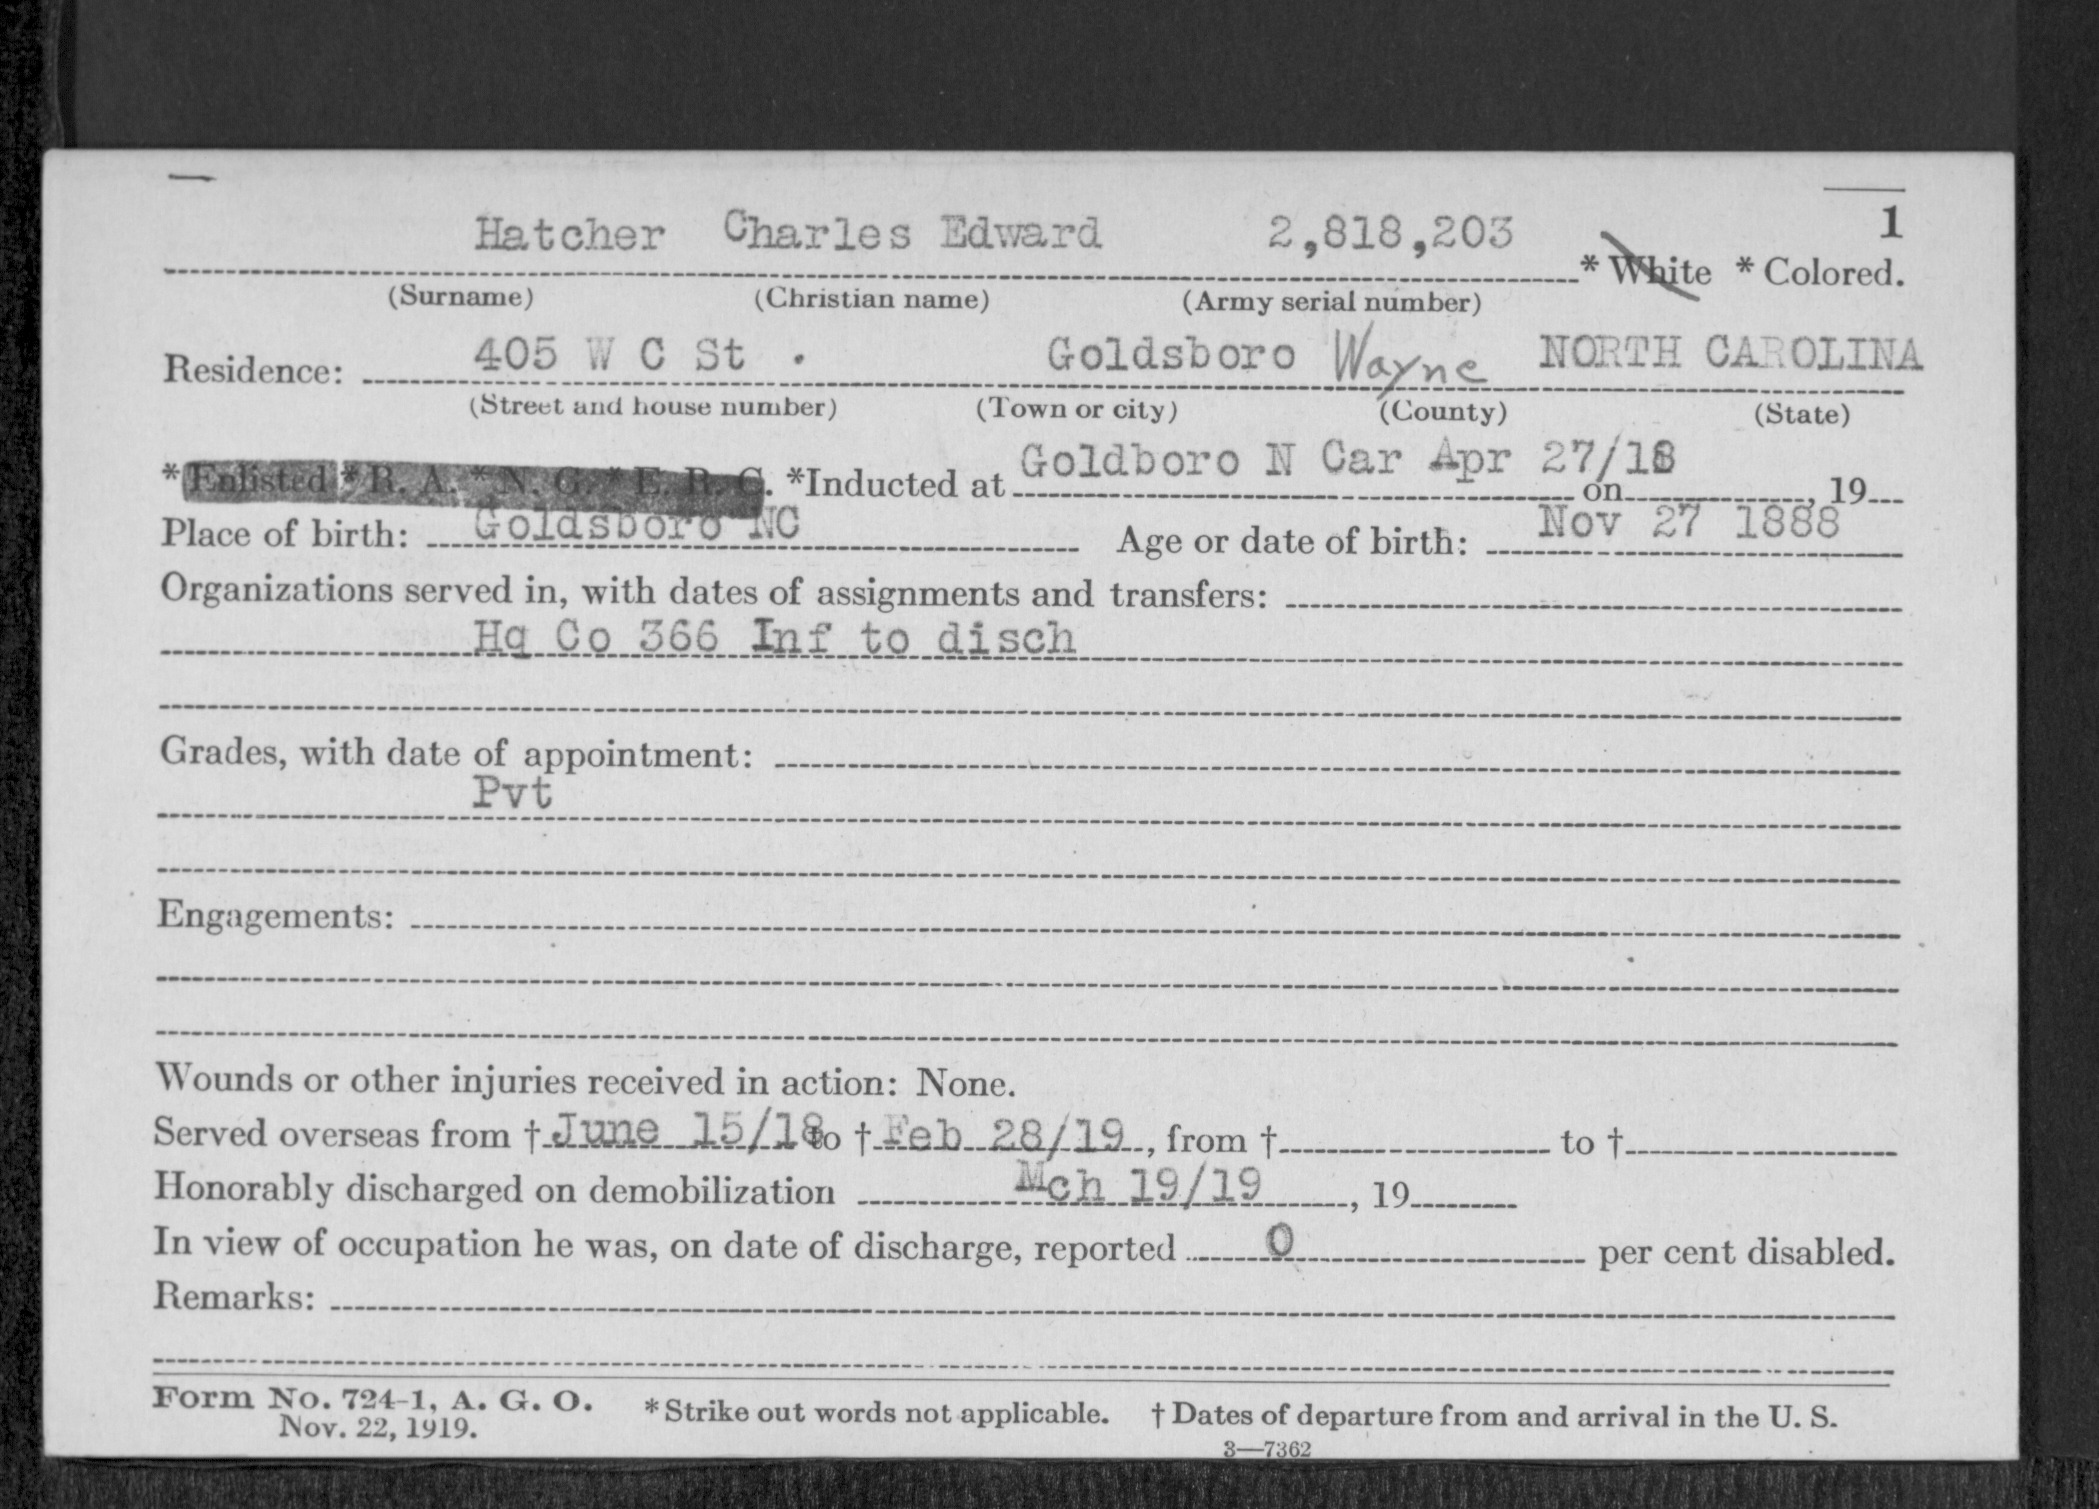 1
Hatcher Charles Edward 2,818,203 * White * Colored.
(Surname) (Christian name) (Army serial number)
Residence: 405 W C St . Goldsboro Wayne NORTH CAROLINA
(Street and house number) (Town or city) (County) (State)
* Enlisted * R. A. * N. G. * E. R. C. *Inducted at Goldboro N Car Apr 27/18 on , 19
Place of birth: Goldsboro NC Age or date of birth: Nov 27 1888
Organizations served in, with dates of assignments and transfers:
Hq Co 366 Inf to disch
Grades, with date of appointment:
Pvt
Engagements:
Wounds or other injuries received in action: None.
Served overseas from † June 15/18 to † Feb 28/19, from † to †
Honorably discharged on demobilization Mch 19/19, 19
In view of occupation he was, on date of discharge, reported 0 per cent disabled.
Remarks:
Form No. 724-1, A. G. O. * Strike out words not applicable. † Dates of departure from and arrival in the U. S.
Nov. 22, 1919.
3—7362